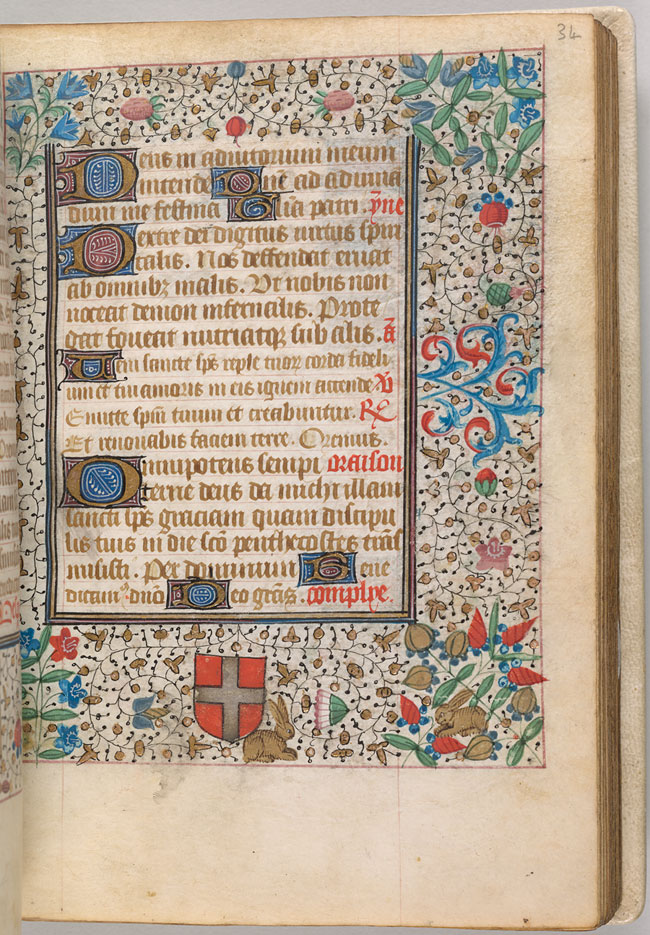 34
Deus in adiutorium meum
intende Dne ad adiuua
dum me festina Glia patri. yne
Dextre dei digitus virtus spiri
talis. Nos deffendat eruat
ab omnibz malis. Vt nobis non
noceat demon infernalis. Prote
gat foueat nutriatqz sub alis. a
Veni sancte sps reple tuor corda fideli
um et tui amoris in eis ignem accende
Emitte spm tuum et creabuntur. R
Et renouabis faciem terre. Oremus.
Omnipotens sempi oraison
terne deus da michi illam
sancti sps graciam quam discipu
lis tuis in die sco penthecostes trans
misisti. Per dominum Bene
dicam9. dno Deo gras. complye.